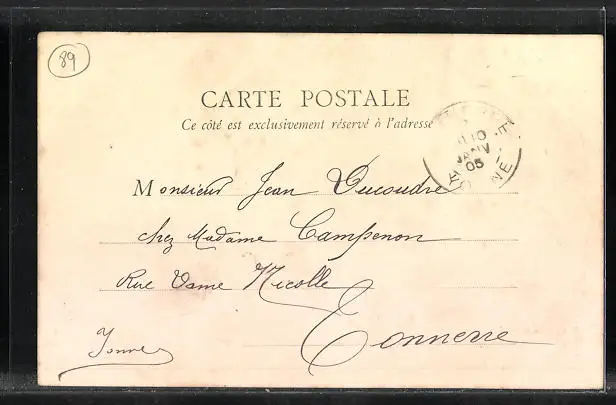 89
CARTE POSTALE
Ce côté est exclusivement réservé à l'adresse
10
JANV
05
Monsieur Jean Ducoudré
chez Madame Campenon
Rue Dame Nicolle
Tonnerre
Yonne